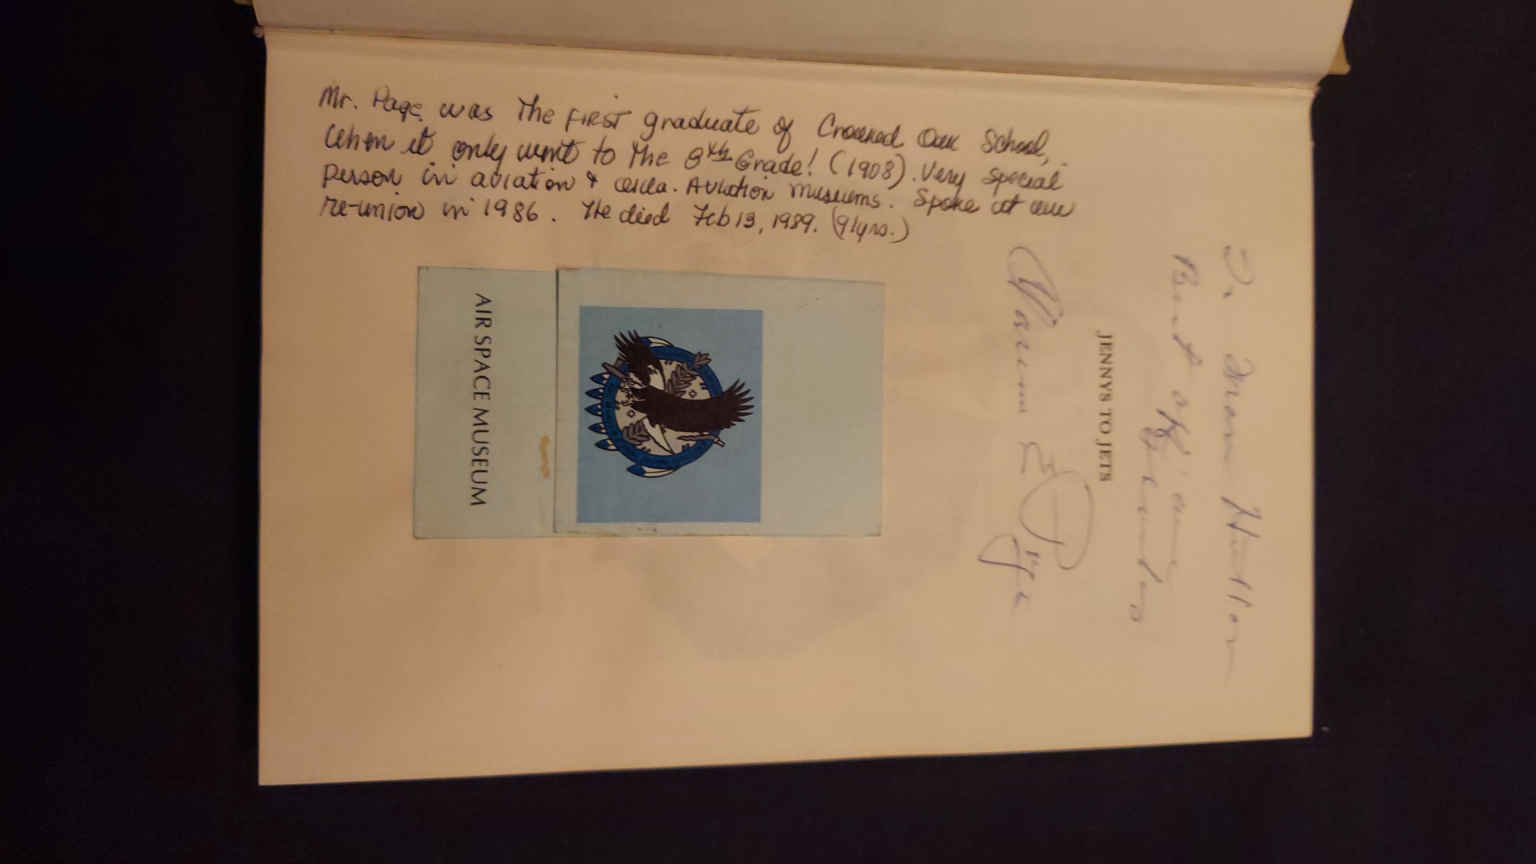 Mr. Page was The FIRST graduate of Crooked Oak School,
when it only went to the 8th Grade! (1908). Very Special
person in aviation & Okla. Aviation museums. Spoke at our
re-union in 1986. He died Feb 13, 1989. (91yrs.)
To Hutton
Best of
JENNYS TO JETS
E Page
AIR SPACE MUSEUM